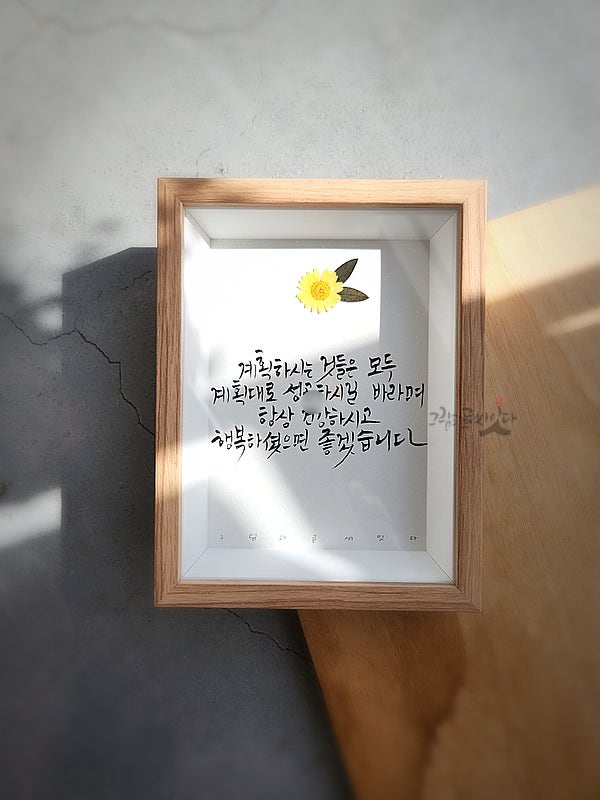 계획하시는 것들은 모두
계획대로 성공하시길 바라며
항상 건강하시고
행복하셨으면 좋겠습니다
그림과글씨잇다
그림과글세잇다